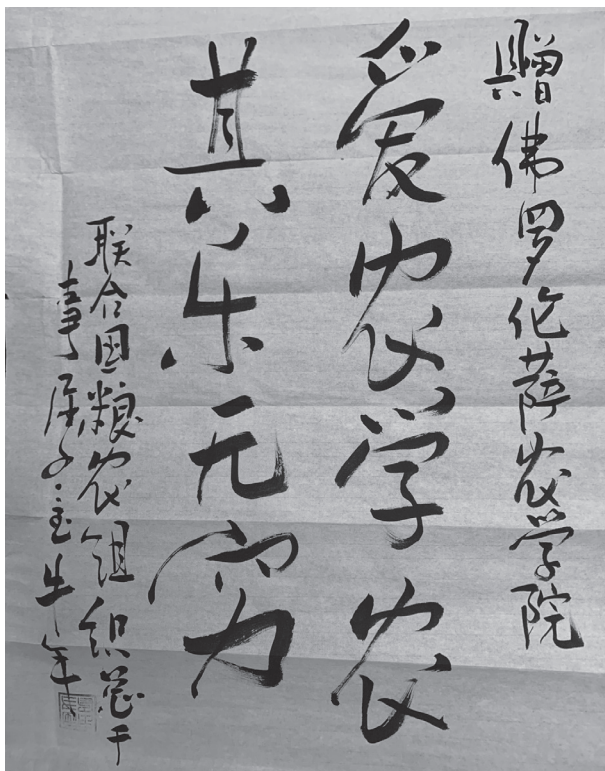 贈佛罗伦萨农学院
爱农学农
其乐无穷
联合国粮农组织总干
事屈冬玉牛年